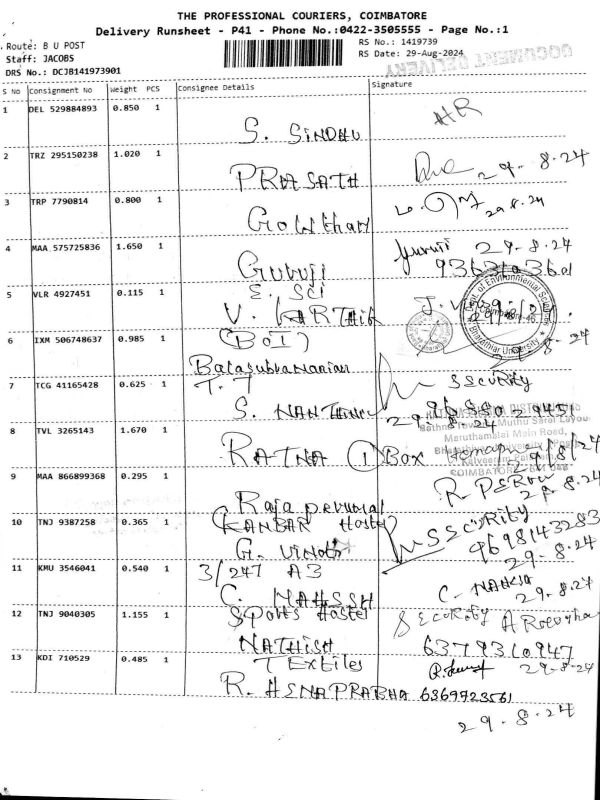 THE PROFESSIONAL COURIERS, COIMBATORE
Delivery Runsheet - P41 - Phone No.:0422-3505555 - Page No.:1
Route: B U POST
RS No.: 1419739
Staff: JACOBS
RS Date: 29-Aug-2024
DOCUMENT DELIVERY
DRS No.: DCJB141973901
S No Consignment No Weight PCS Consignee Details Signature
1 DEL 529884893 0.850 1
S. SINDHU
2 TRZ 295150238 1.020 1
29-8-24
PRASATH
3 TRP 7790814 0.800 1
29.8.24
Gowtham
4 MAA 575725836 1.650 1
Guruji 29-8-24
Guruji
5 VLR 4927451 0.115 1
E. Sci
V. KARTHIK
6 IXM 506748637 0.985 1
(BOI)
Balasubramanian
7 TCG 41165428 0.625 1
T.T
SECURITY
S.
29-8-24
8 TVL 3265143 1.670 1
Maruthamalai Main Road,
RATNA 1 Box
29/8/24
9 MAA 866899368 0.295 1
29.8.24
Rajaperumal
10 TNJ 9387258 0.365 1
Hostel
SECURITY
9698143283
G. Vinoth
29-8-24
11 KMU 3546041 0.540 1
3/247 A3
29-8-24
12 TNJ 9040305 1.155 1
Sports Hostel
6379310947
NATHISH
13 KDI 710529 0.485 1
Textiles
29-8-24
R. HENAPRABHA 6369923561
29-8-24